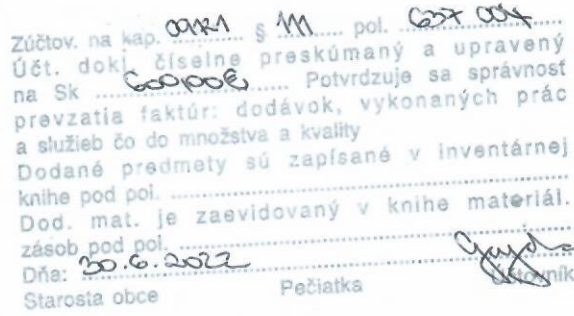 Zúčtov. na kap. 09121 § 111 pol. 637 004
Účt. dokl. číselne preskúmaný a upravený
na Sk 600,00€ Potvrdzuje sa správnosť
prevzatia faktúr: dodávok, vykonaných prác
a služieb čo do množstva a kvality
Dodané predmety sú zapísané v inventárnej
knihe pod pol.
Dod. mat. je zaevidovaný v knihe materiál.
zásob pod pol.
Dňa: 30.6.2022
Starosta obce Pečiatka Účtovník